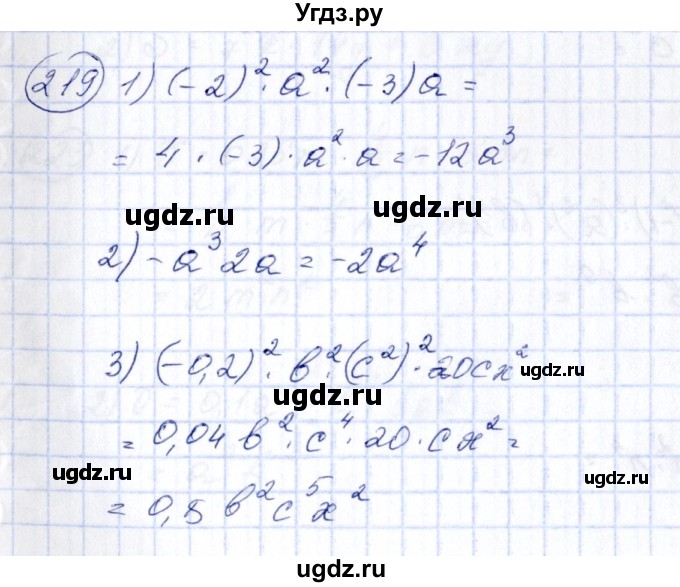 Угдз.ру
219 1) (-2)²·a²·(-3)a =
= 4·(-3)·a²·a = -12a³
ugdz.ru ugdz.ru
2) -a³2a = -2a⁴
3) (-0,2)²·b²·(c²)²·20cx²
ugdz.ru
ugdz.ru
= 0,04b²·c⁴·20·cx² =
ugdz.ru ugdz.ru
= 0,8b²c⁵x²
ugdz.ru